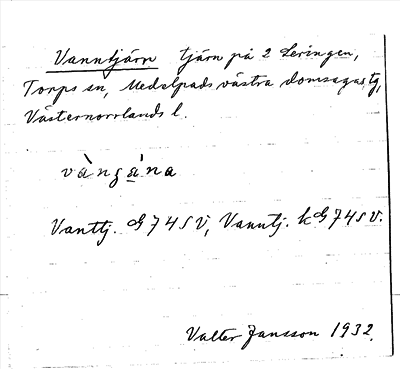 Vanntjärn tjärn på 2 Leringen,
Torps sn, Medelpads västra domsagas tg,
Västernorrlands l.
vàngána
Vanttj. G 74 S V, Vanntj. k G 74 S V.
Valter Jansson 1932.